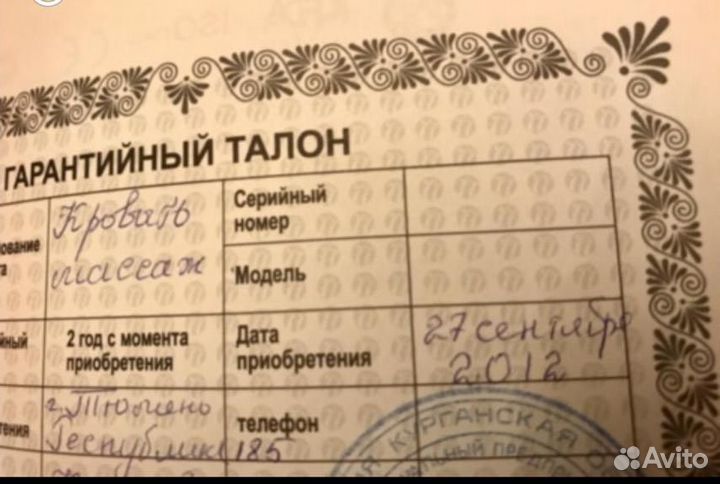 ГАРАНТИЙНЫЙ ТАЛОН
Кровать
массаж
Серийный
номер
Модель
2 год с момента
приобретения
Дата
приобретения
27 сентября
2012
г. Тюмень
Республики 185
телефон
КУРГАНСКАЯ
Avito